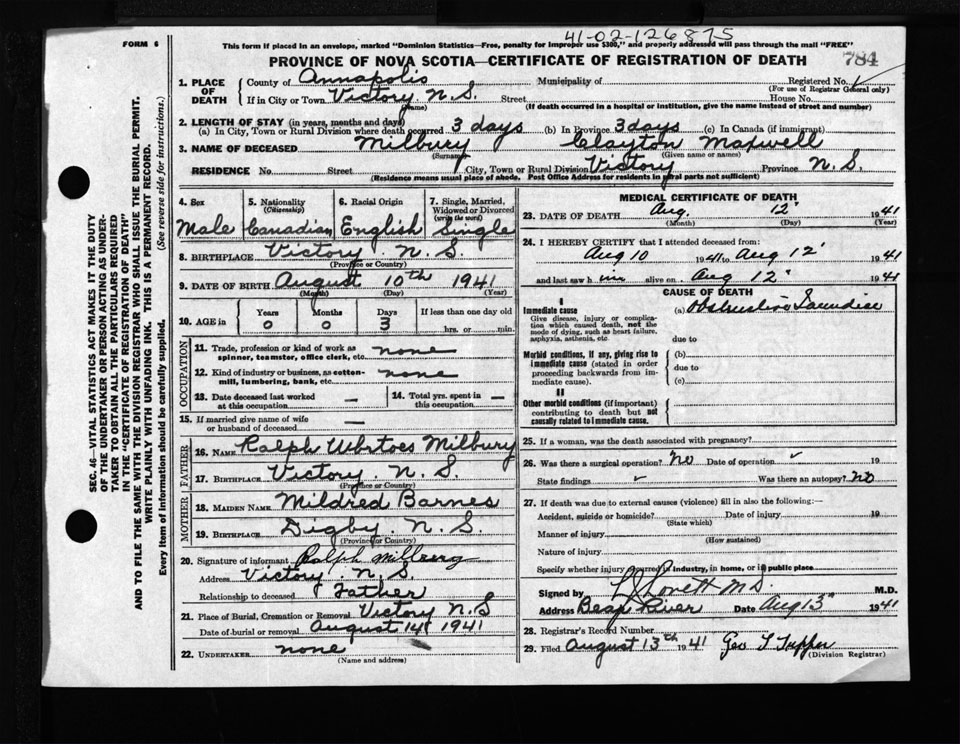 41-02-126875
FORM 6
This form if placed in an envelope, marked "Dominion Statistics—Free, penalty for improper use $300," and properly addressed will pass through the mail "FREE"
PROVINCE OF NOVA SCOTIA—CERTIFICATE OF REGISTRATION OF DEATH
784
1. PLACE OF DEATH County of Annapolis Municipality of Registered No. 1
(For use of Registrar General only)
If in City or Town Victory N.S. Street House No.
(Name) (If death occurred in a hospital or institution, give the name instead of street and number)
2. LENGTH OF STAY (in years, months and days)
(a) In City, Town or Rural Division where death occurred 3 days (b) In Province 3 days (c) In Canada (if immigrant)
3. NAME OF DECEASED Milbury Clayton Maxwell
(Surname) (Given name or names)
RESIDENCE No. Street City, Town or Rural Division Victory Province N.S.
(Residence means usual place of abode. Post Office Address for residents in rural parts not sufficient)
4. Sex
Male
5. Nationality
(Citizenship)
Canadian
6. Racial Origin
English
7. Single, Married, Widowed or Divorced
(write the word)
Single
8. BIRTHPLACE Victory N.S.
(Province or Country)
9. DATE OF BIRTH August 10th 1941
(Month) (Day) (Year)
10. AGE in Years Months Days If less than one day old
0 0 3 hrs. or min.
OCCUPATION
11. Trade, profession or kind of work as spinner, teamster, office clerk, etc. none
12. Kind of industry or business, as cotton-mill, lumbering, bank, etc. none
13. Date deceased last worked at this occupation —
14. Total yrs. spent in this occupation —
15. If married give name of wife or husband of deceased —
FATHER
16. NAME Ralph Milbury
17. BIRTHPLACE Victory. N.S.
(Province or Country)
MOTHER
18. MAIDEN NAME Mildred Barnes
19. BIRTHPLACE Digby N.S.
(Province or Country)
20. Signature of informant Ralph Milbury
Address Victory. N.S.
Relationship to deceased Father
21. Place of Burial, Cremation or Removal Victory N.S
Date of burial or removal August 14 1941
22. UNDERTAKER none
(Name and address)
MEDICAL CERTIFICATE OF DEATH
23. DATE OF DEATH Aug. 12 1941
(Month) (Day) (Year)
24. I HEREBY CERTIFY that I attended deceased from:
Aug 10 1941 to Aug 12 1941
and last saw him alive on Aug 12 1941
CAUSE OF DEATH
I
Immediate cause
Give disease, injury or complication which caused death, not the mode of dying, such as heart failure, asphyxia, asthenia, etc.
(a) Obstructive Jaundice
due to
Morbid conditions, if any, giving rise to immediate cause (stated in order proceeding backwards from immediate cause).
(b)
due to
(c)
II
Other morbid conditions (if important) contributing to death but not causally related to immediate cause.
25. If a woman, was the death associated with pregnancy?
26. Was there a surgical operation? No Date of operation 19
State findings Was there an autopsy? No
27. If death was due to external causes (violence) fill in also the following:—
Accident, suicide or homicide? Date of injury 19
(State which)
Manner of injury
(How sustained)
Nature of injury
Specify whether injury occurred in industry, in home, or in public place
Signed by Lovett M D. M.D.
Address Bear River Date Aug 13 1941
28. Registrar's Record Number
29. Filed August 13th 1941 Geo T Tupper
(Division Registrar)
SEC. 46—VITAL STATISTICS ACT MAKES IT THE DUTY
OF THE UNDERTAKER OR PERSON ACTING AS UNDER-
TAKER TO OBTAIN ALL THE PARTICULARS REQUIRED
IN THE "CERTIFICATE OF REGISTRATION OF DEATH"
AND TO FILE THE SAME WITH THE DIVISION REGISTRAR WHO SHALL ISSUE THE BURIAL PERMIT.
WRITE PLAINLY WITH UNFADING INK. THIS IS A PERMANENT RECORD.
Every item of information should be carefully supplied. (See reverse side for instructions.)